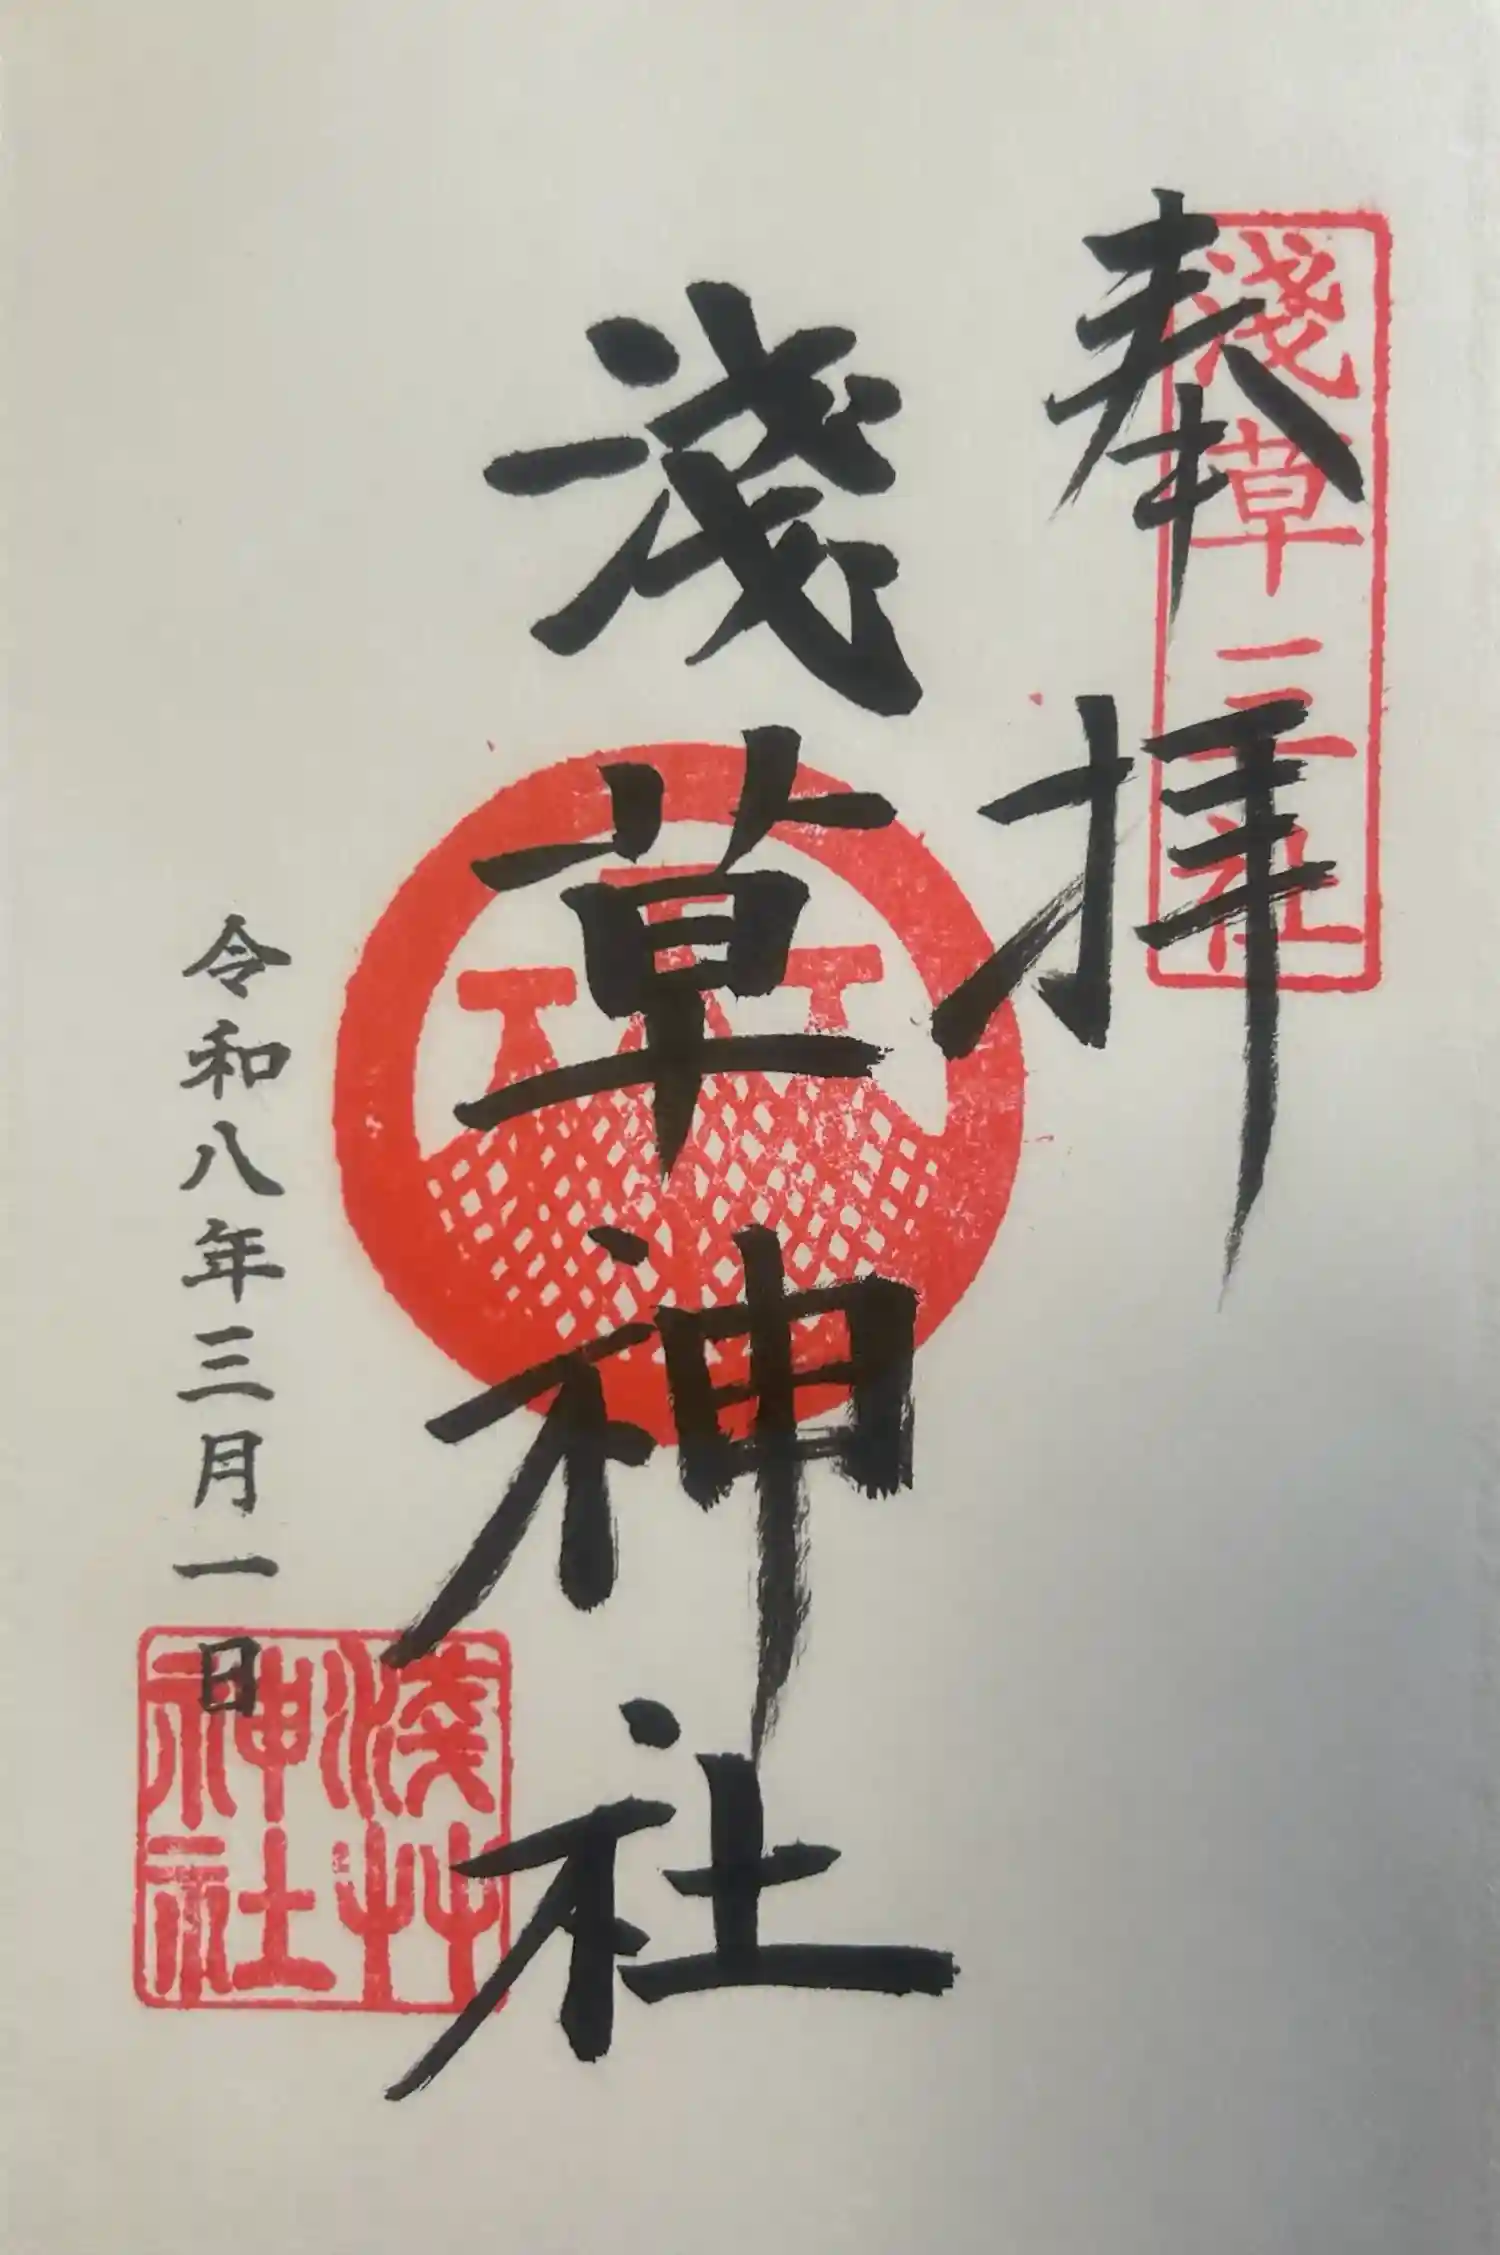 奉拝
淺草三社
浅草神社
令和八年三月一日
淺艸神社